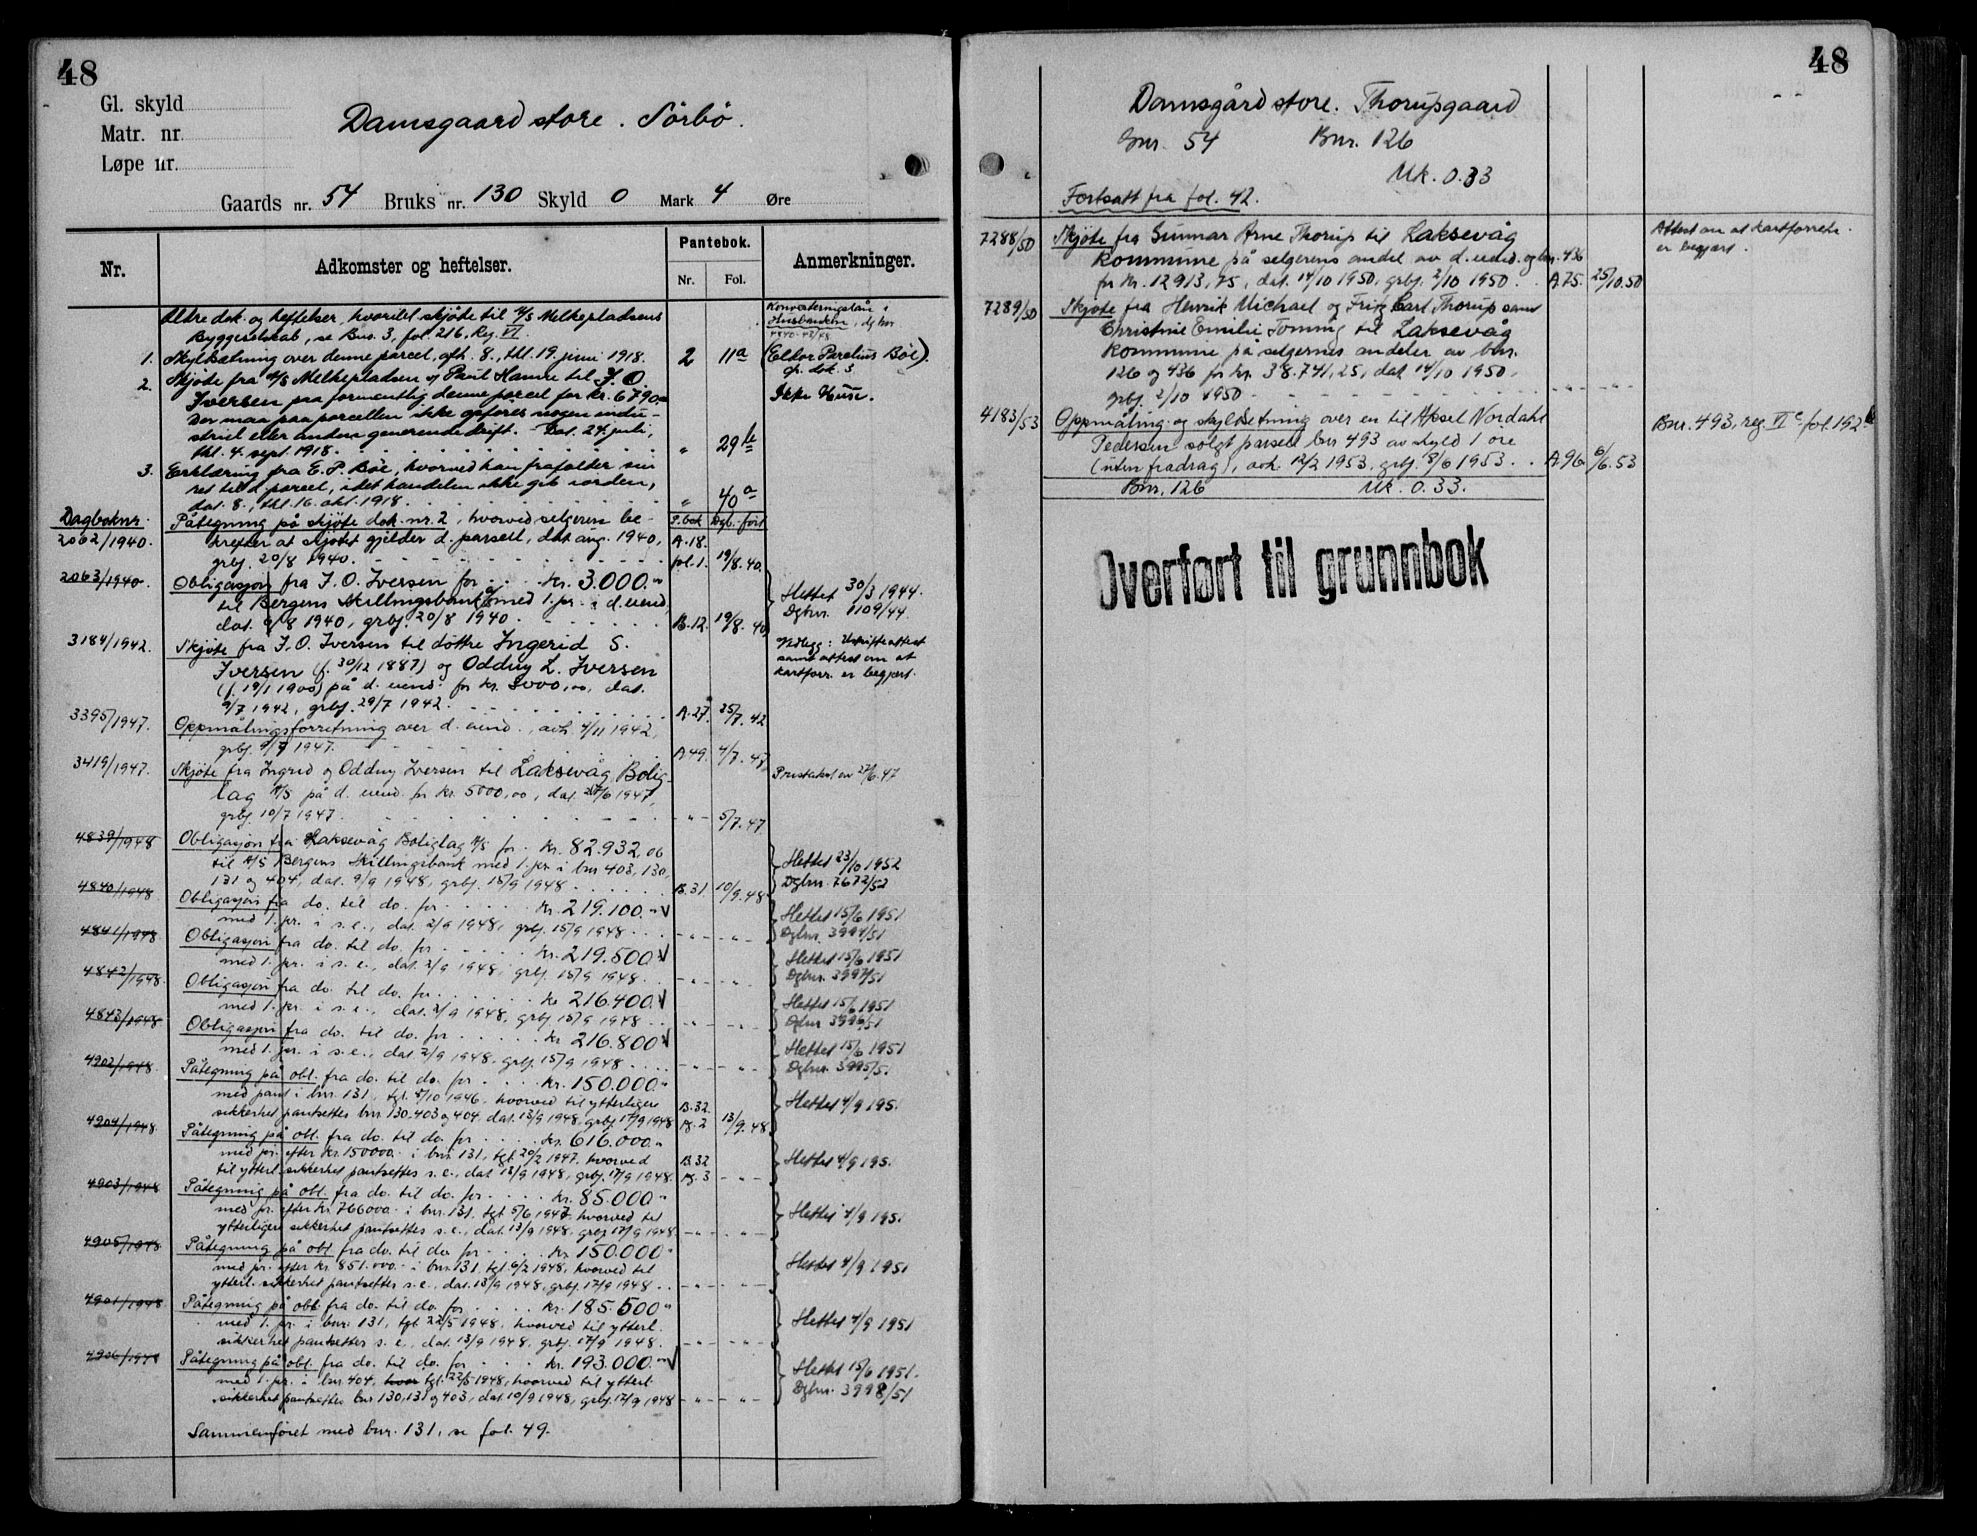 48
Gl. skyld
Matr. nr.
Løpe nr.
Damsgaard store. Sørbø.
Gaards nr. 54 Bruks nr. 130 Skyld 0 Mark 4 Øre
Nr.
Adkomster og heftelser.
Pantebok.
Nr. Fol.
Anmerkninger.
Ældre dok. og heftelser, hvoriblt skjøte til A/S Melkepladsens
Byggeselskab, se Bns. 3, fol. 216, Reg. VI.
Konverteringslån i
Husbanken, dg.bnr
4840-43/48
1. Skyldsetning over denne parcel, afh. 8., thl. 19. juni 1918. 2 11a
(Ellor Parelius Böe).
cfr. dok. 3
2. Skjøte fra A/S Melkepladsen v/ Paul Hamre til J. O.
Iversen paa formentlig denne parcel for kr. 6790.
Ikke Huse.
Der maa paa parcellen ikke opføres nogen indu-
striel eller anden generende drift. Dat. 24. juli,
thl. 4. sept. 1918. " 29b
3. Erklæring fra E. P. Böe, hvorved han frafalder sin
ret til d. parcel, idet handelen ikke gik i orden,
dat. 8., thl. 16. okt. 1918. " 40a
Dagboknr.
P.bok Dgb. ført
2062/1940. Påtegning på skjøte dok. nr. 2, hvorved selgeren be-
krefter at skjøtet gjelder d. parsell, dat aug. 1940, A.18.
grbj. 20/8 1940. fol. 1. 19/8. 40.
2063/1940. Obligasjon fra J. O. Iversen for kr. 3.000.
til Bergens Skillingsbank med 1. pr. i d. eiend.
dat. 9/8 1940, grbj. 20/8 1940. B.12. 19/8. 40.
Slettet 30/3 1944.
Dgbnr. 1109/44.
3184/1942. Skjøte fra J. O. Iversen til døttre Ingerid S.
Iversen (f. 30/12 1887) og Oddny L. Iversen
(f. 19/1 1900) på d. eiend. for kr. 3000,00, dat.
9/7 1942, grbj. 29/7 1942. A.27. 25/7. 42
Vedlegg: Utskifteattest
samt attest om at
kartforr. er begjært.
3395/1947. Oppmålingsforretning over d. eiend., avh. 4/11 1942,
grbj. 9/7 1947. A 49. 4/7. 47.
3419/1947. Skjøte fra Ingrid og Oddny Iversen til Laksevåg Bolig-
lag A/S på d. eiend. for kr. 5000,00, dat. 28/6 1947,
grbj. 10/7 1947. - " - 5/7. 47.
Pristakst av 27/6. 47
4839/1948 Obligasjon fra Laksevåg Boliglag A/S for kr. 82.932,06
til A/S Bergens Skillingsbank med 1. pr. i bnr 403, 130,
131 og 404, dat. 9/9 1948, grbj. 15/9 1948. B.31 10/9. 48
Slettet 23/10 1952
Dgbnr. 7672/52
4840/1948 Obligasjon fra do. til do. for kr. 219.100.
med 1. pr. i s.e., dat. 2/9 1948, grbj. 15/9 1948. - " - - " -
Slettet 15/6 1951
Dgbnr. 3994/51
4841/1948 Obligasjon fra do. til do. for kr. 219.500.
med 1. pr. i s.e., dat. 2/9 1948, grbj. 15/9 1948. - " - - " -
Slettet 15/6 1951
Dgbnr. 3997/51
4842/1948 Obligasjon fra do. til do. for kr 216.400.
med 1. pr. i s.e., dat. 2/9 1948, grbj 15/9 1948 - " - - " -
Slettet 15/6 1951
Dgbnr 3996/51
4843/1948 Obligasjon fra do. til do. for kr 216.800
med 1. pr. i s.e., dat 2/9 1948, grbj. 15/9 1948 - " - - " -
Slettet 15/6 1951
Dgbnr. 3995/51
4902/1948. Påtegning på obl. fra do. til do. for kr. 150.000.
med pant i bnr. 131, tgl. 5/10 1946, hvorved til ytterligere
sikkerhet pantsettes bnr 130, 403 og 404 dat. 13/9 1948, grbj. 17/9 1948 B.32 Pg. 2 13/9. 48
Slettet 4/9 195.
4904/1948 Påtegning på obl. fra do. til do. for kr. 616.000.
med pr. efter kr. 150000. i bnr. 131, tgl. 20/2 1947, hvorved
til ytterl. sikkerhet pantsettes s.e., dat 13/9 1948, grbj. 17/9 1948. B.32 Pg. 3 - " -
Slettet 4/9 195.
4903/1948 Påtegning på obl. fra do. til do. for kr. 85.000
med pr. efter kr 766000. i bnr. 131, tgl 5/6 1947, hvorved til
ytterligere sikkerhet pantsettes s.e., dat. 13/9 1948, grbj 17/9 1948. - " - - " -
Slettet 4/9 195.
4905/1948 Påtegning på obl. fra do. til do for kr 150.000
med pr. efter kr 851.000. i bnr. 131, tgl. 6/2 1948, hvorved til
ytterl. sikkerhet pantsettes s.e., dat. 13/9 1948, grbj. 17/9 1948. - " - - " -
Slettet 4/9 1951
4901/1948 Påtegning på obl. fra do. til do. for kr. 185.500
med 1. pr. i bnr. 131, tgl 22/5 1948, hvorved til ytterl.
sikkerhet pantsettes s.e., dat. 13/9 1948, grbj. 17/9 1948. - " - - " -
Slettet 4/9 1951
4906/1948 Påtegning på obl. fra do. til do. for kr. 193.000.
med 1. pr. i bnr 404, tgl. 22/5 1948, hvorved til ytterl.
sikkerhet pantsettes bnr 130, 131 og 403, dat. 10/9 1948, grbj. 17/9 1948 - " - - " -
Slettet 15/6 1951.
Dgbnr. 3998/51
Sammenføiet med bnr. 131, se fol. 49.
48
Damsgård store. Thorupgaard
Gnr. 54 Bnr. 126
Mk. 0.33
Fortsatt fra fol. 42.
7288/50 Skjøte fra Gunnar Arne Thorup til Laksevåg
kommune på selgerens andel av d. eiend. og bnr. 436
for kr. 12913,75, dat. 14/10 1950, grbj. 2/10 1950. A.75. 25/10.50
Attest om at kartforretn.
er begjært.
7289/50 Skjøte fra Henrik Michael og Fritz Carl Thorup samt
Christine Emilie Tonning til Laksevåg
kommune på selgernes andeler av bnr.
126 og 436 for kr. 38.741,25, dat 14/10 1950,
grbj. 2/10 1950 - " - - " -
4183/53 Oppmåling og skyldsetning over en til Aksel Nordahl
Pedersen solgt parsell bnr 493 av skyld 1 øre
(uten fradrag), avh. 12/2 1953, grbj. 8/6 1953. A.96. 6/6.53
Bnr. 493, reg. VI c fol. 192 b
Bnr. 126 Mk. 0.33.
Overført til grunnbok